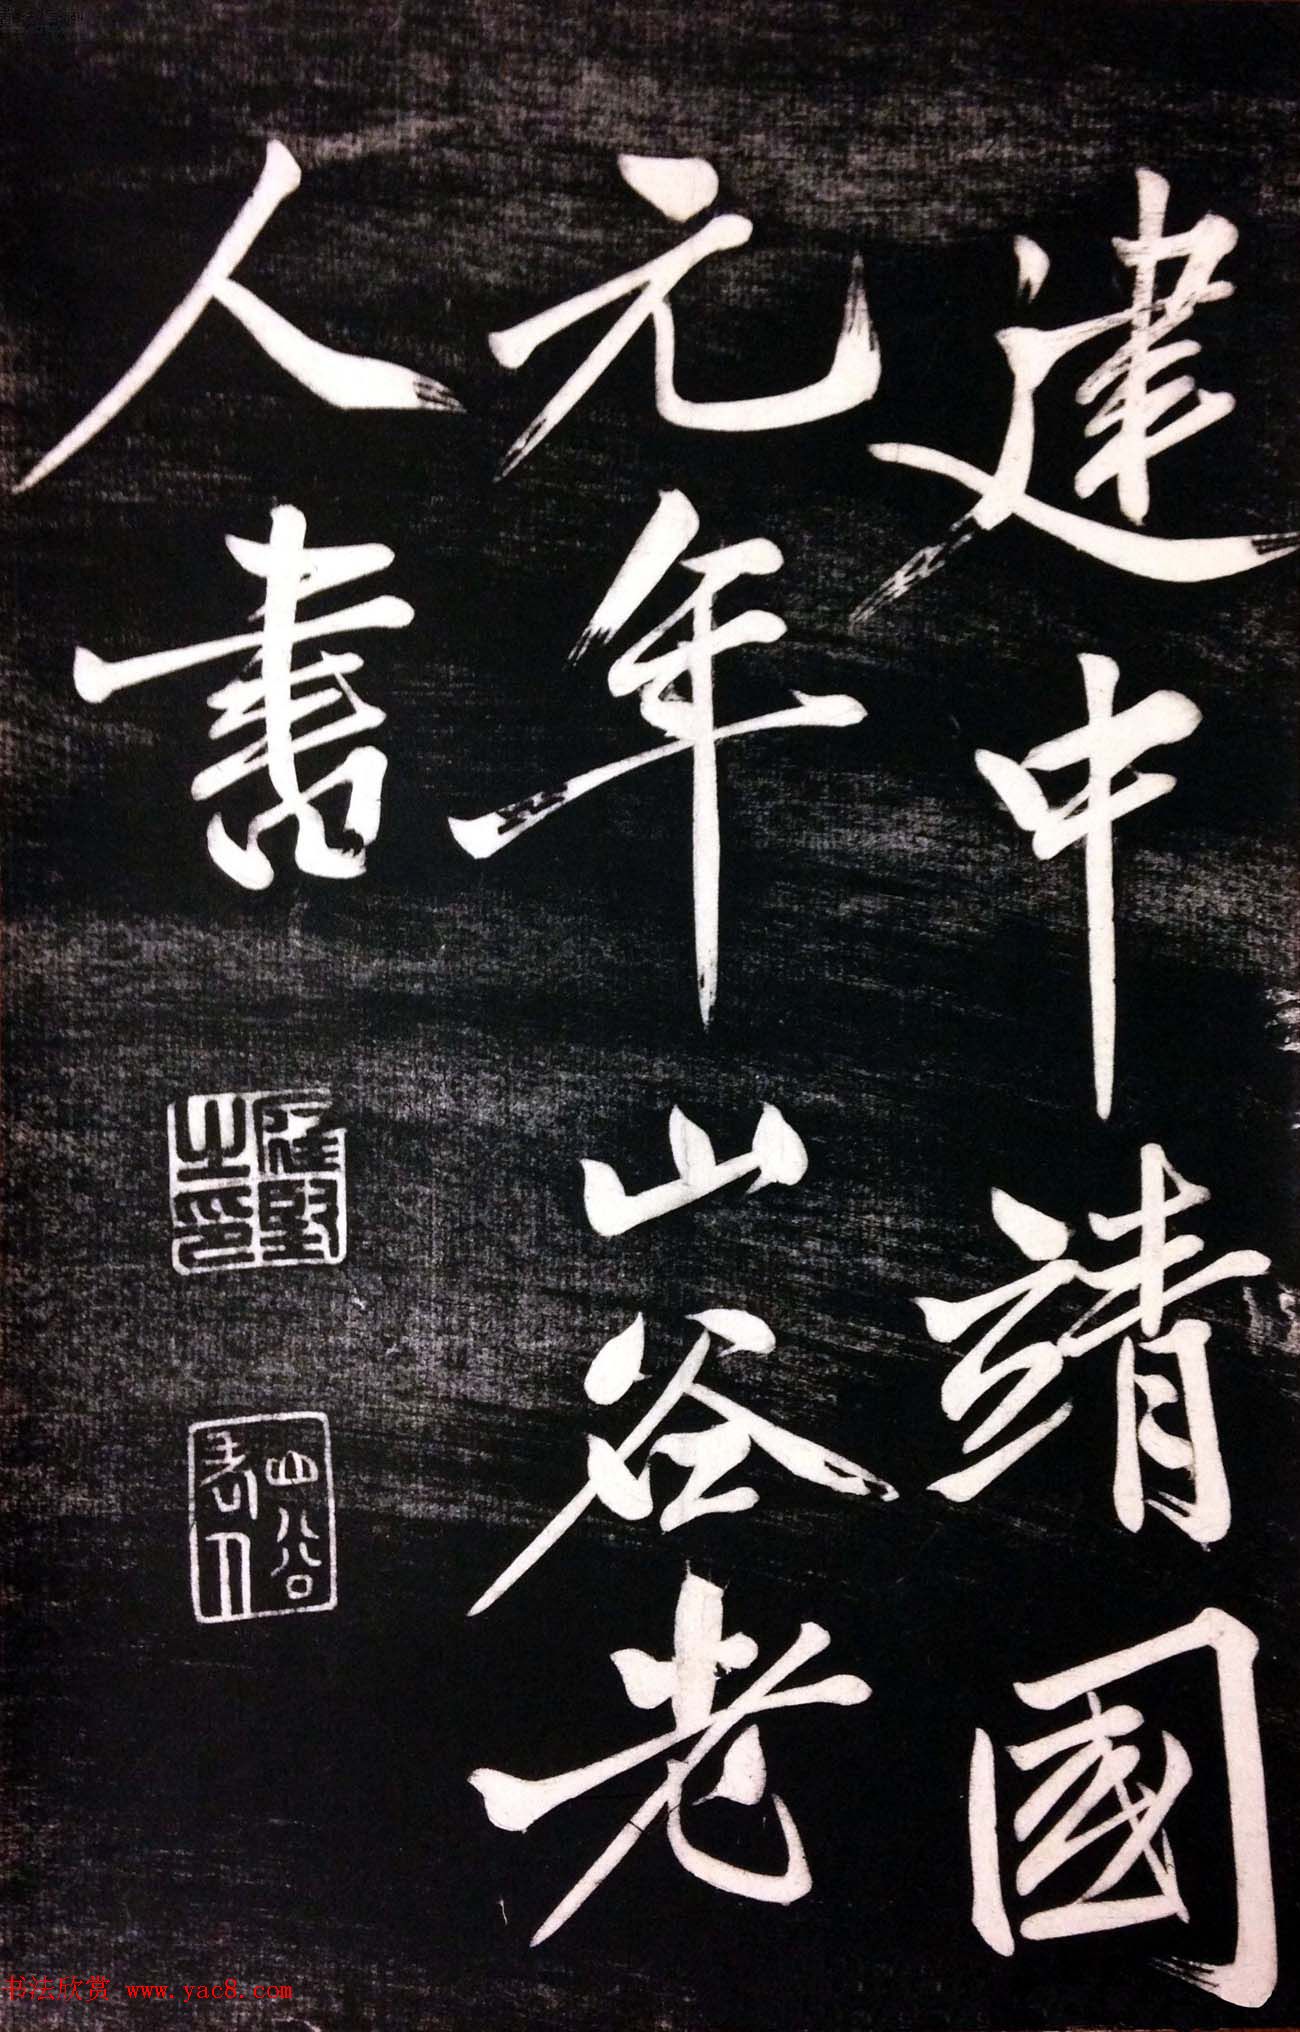 建中靖國
元年山谷老
人書
庭堅之印
山谷老人
书法欣赏 www.yac8.com